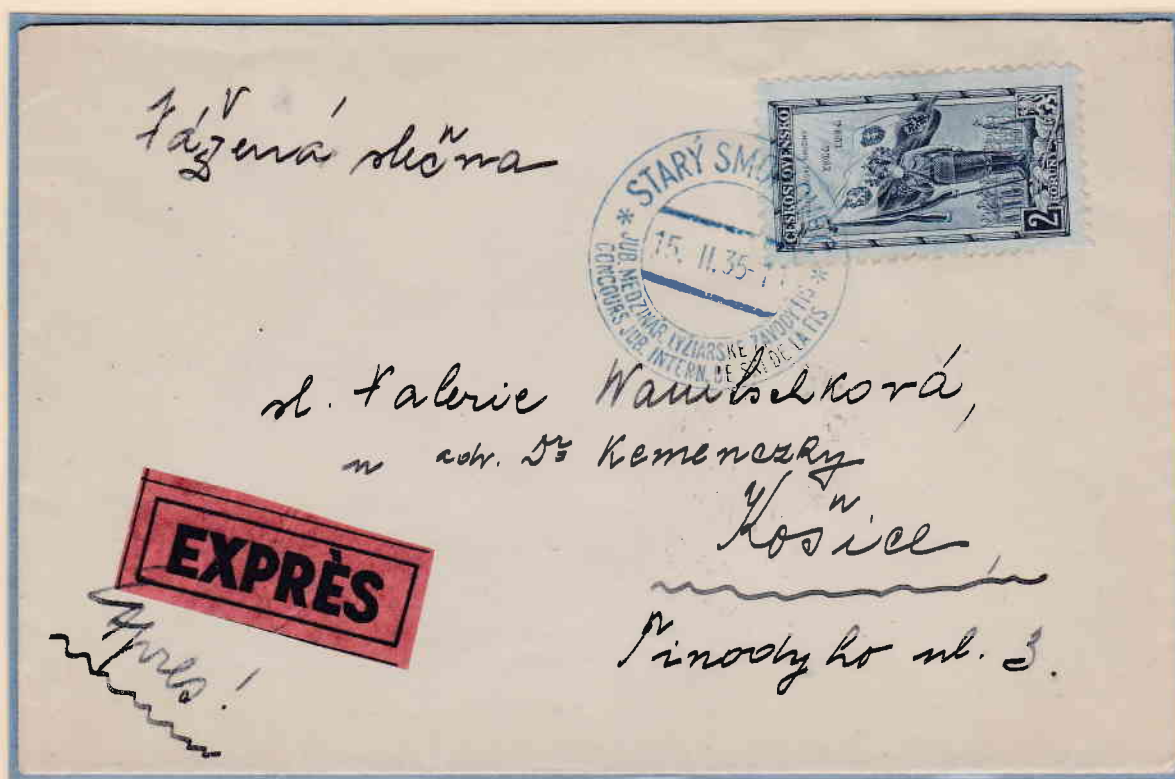 Vážená slečna
STARÝ SMOKOVEC
15. II. 35-
* JUB. MEDZINÁR. LYŽIARSKE ZÁVODY FIS *
CONCOURS JUB. INTERN. DE SKI DE LA FIS
ČESKOSLOVENSKO
2 KORUNY
sl. Valerie
u adv. Dr Kemenczky
Košice
ho ul. 3.
EXPRÈS
Expres!